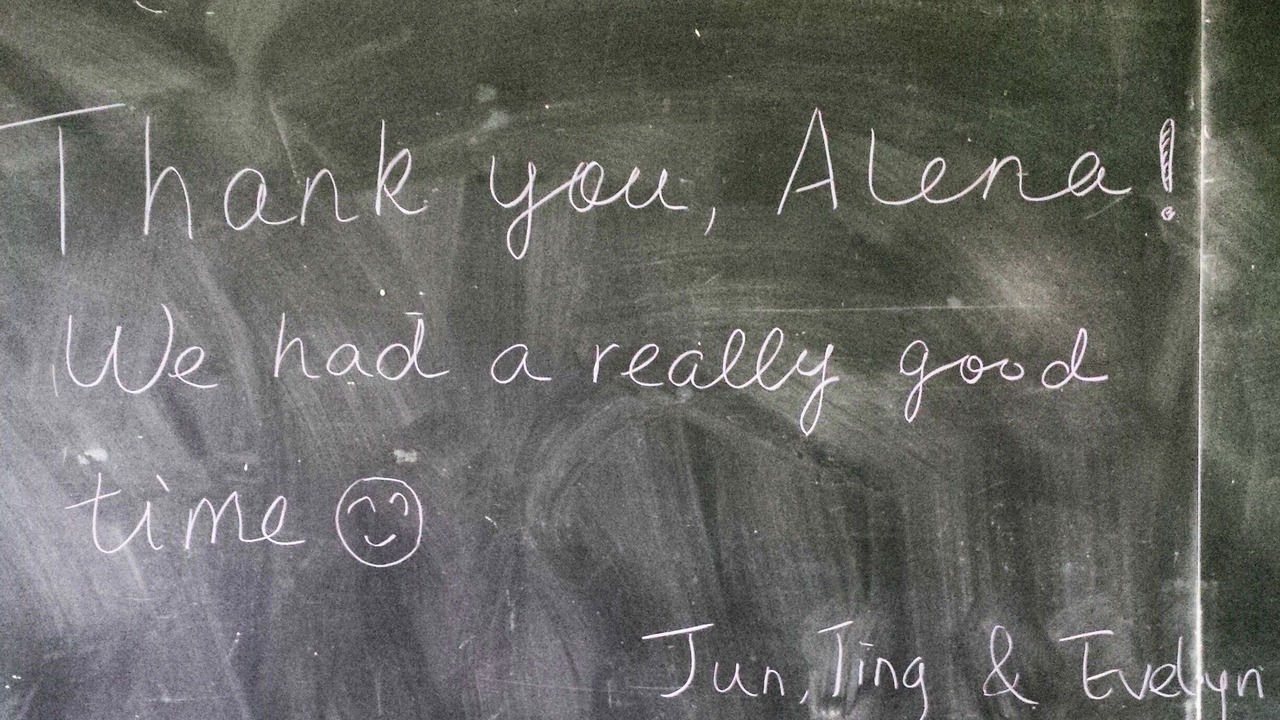 Thank you, Alena!
We had a really good
time ☺
Jun, Ting & Evelyn